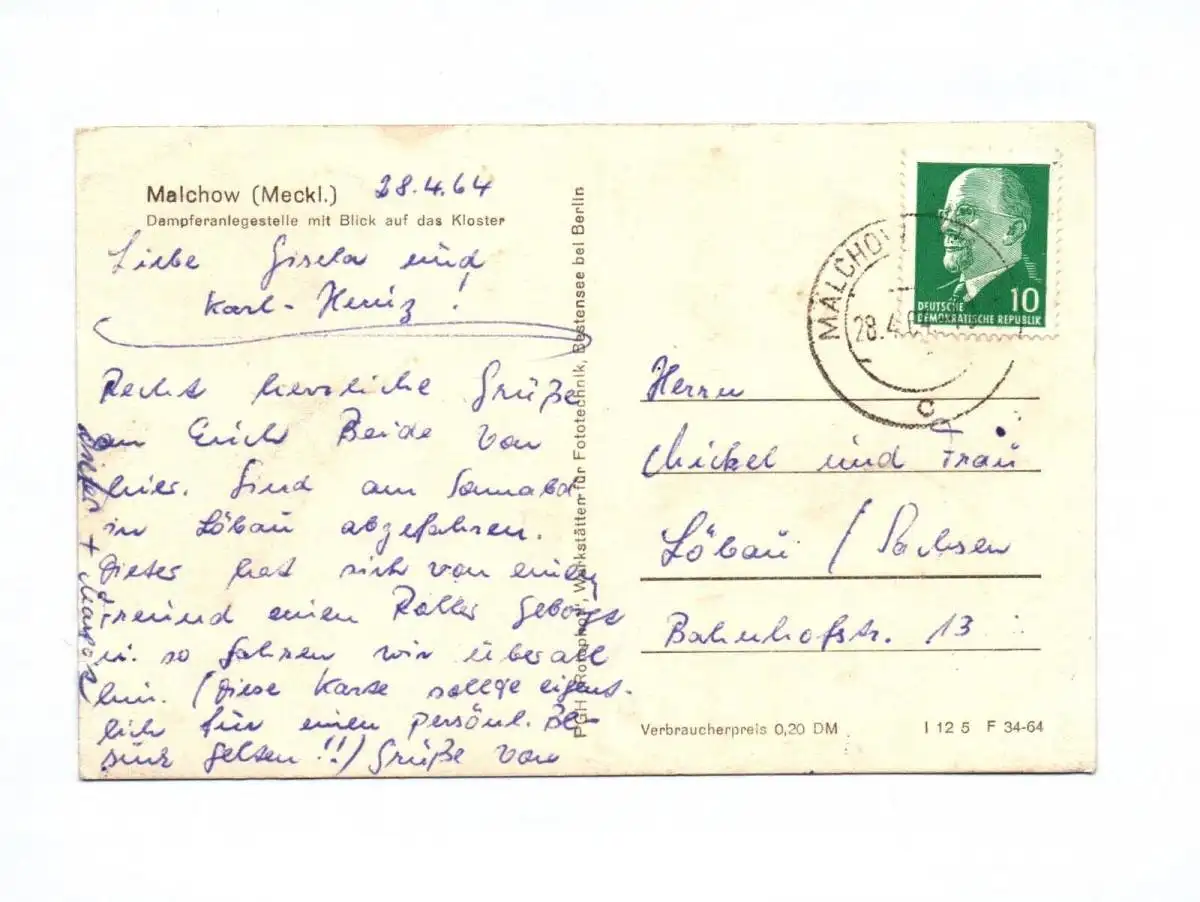 Malchow (Meckl.) 28.4.64
Dampferanlegestelle mit Blick auf das Kloster
Liebe Gisela und
Karl-Heinz!
Recht herzliche Grüße
an Euch Beide von
hier. Sind am Sonnabd
in Löbau abgefahren.
Dieter hat sich von einem
Freund einen Roller geborgt
u. so fahren wir überall
hin. (Diese Karte sollte eigent-
lich für einen persönl. Be-
such gelten!!) Grüße von
Dieter + Margot
PGH „Rotophot“, Werkstätten für Fototechnik, Bestensee bei Berlin
MALCHOW
28.4.64
c
DEUTSCHE 10
DEMOKRATISCHE REPUBLIK
Herrn
Michel und Frau
Löbau / Sachsen
Bahnhofstr. 13
Verbraucherpreis 0,20 DM I 12 5 F 34-64